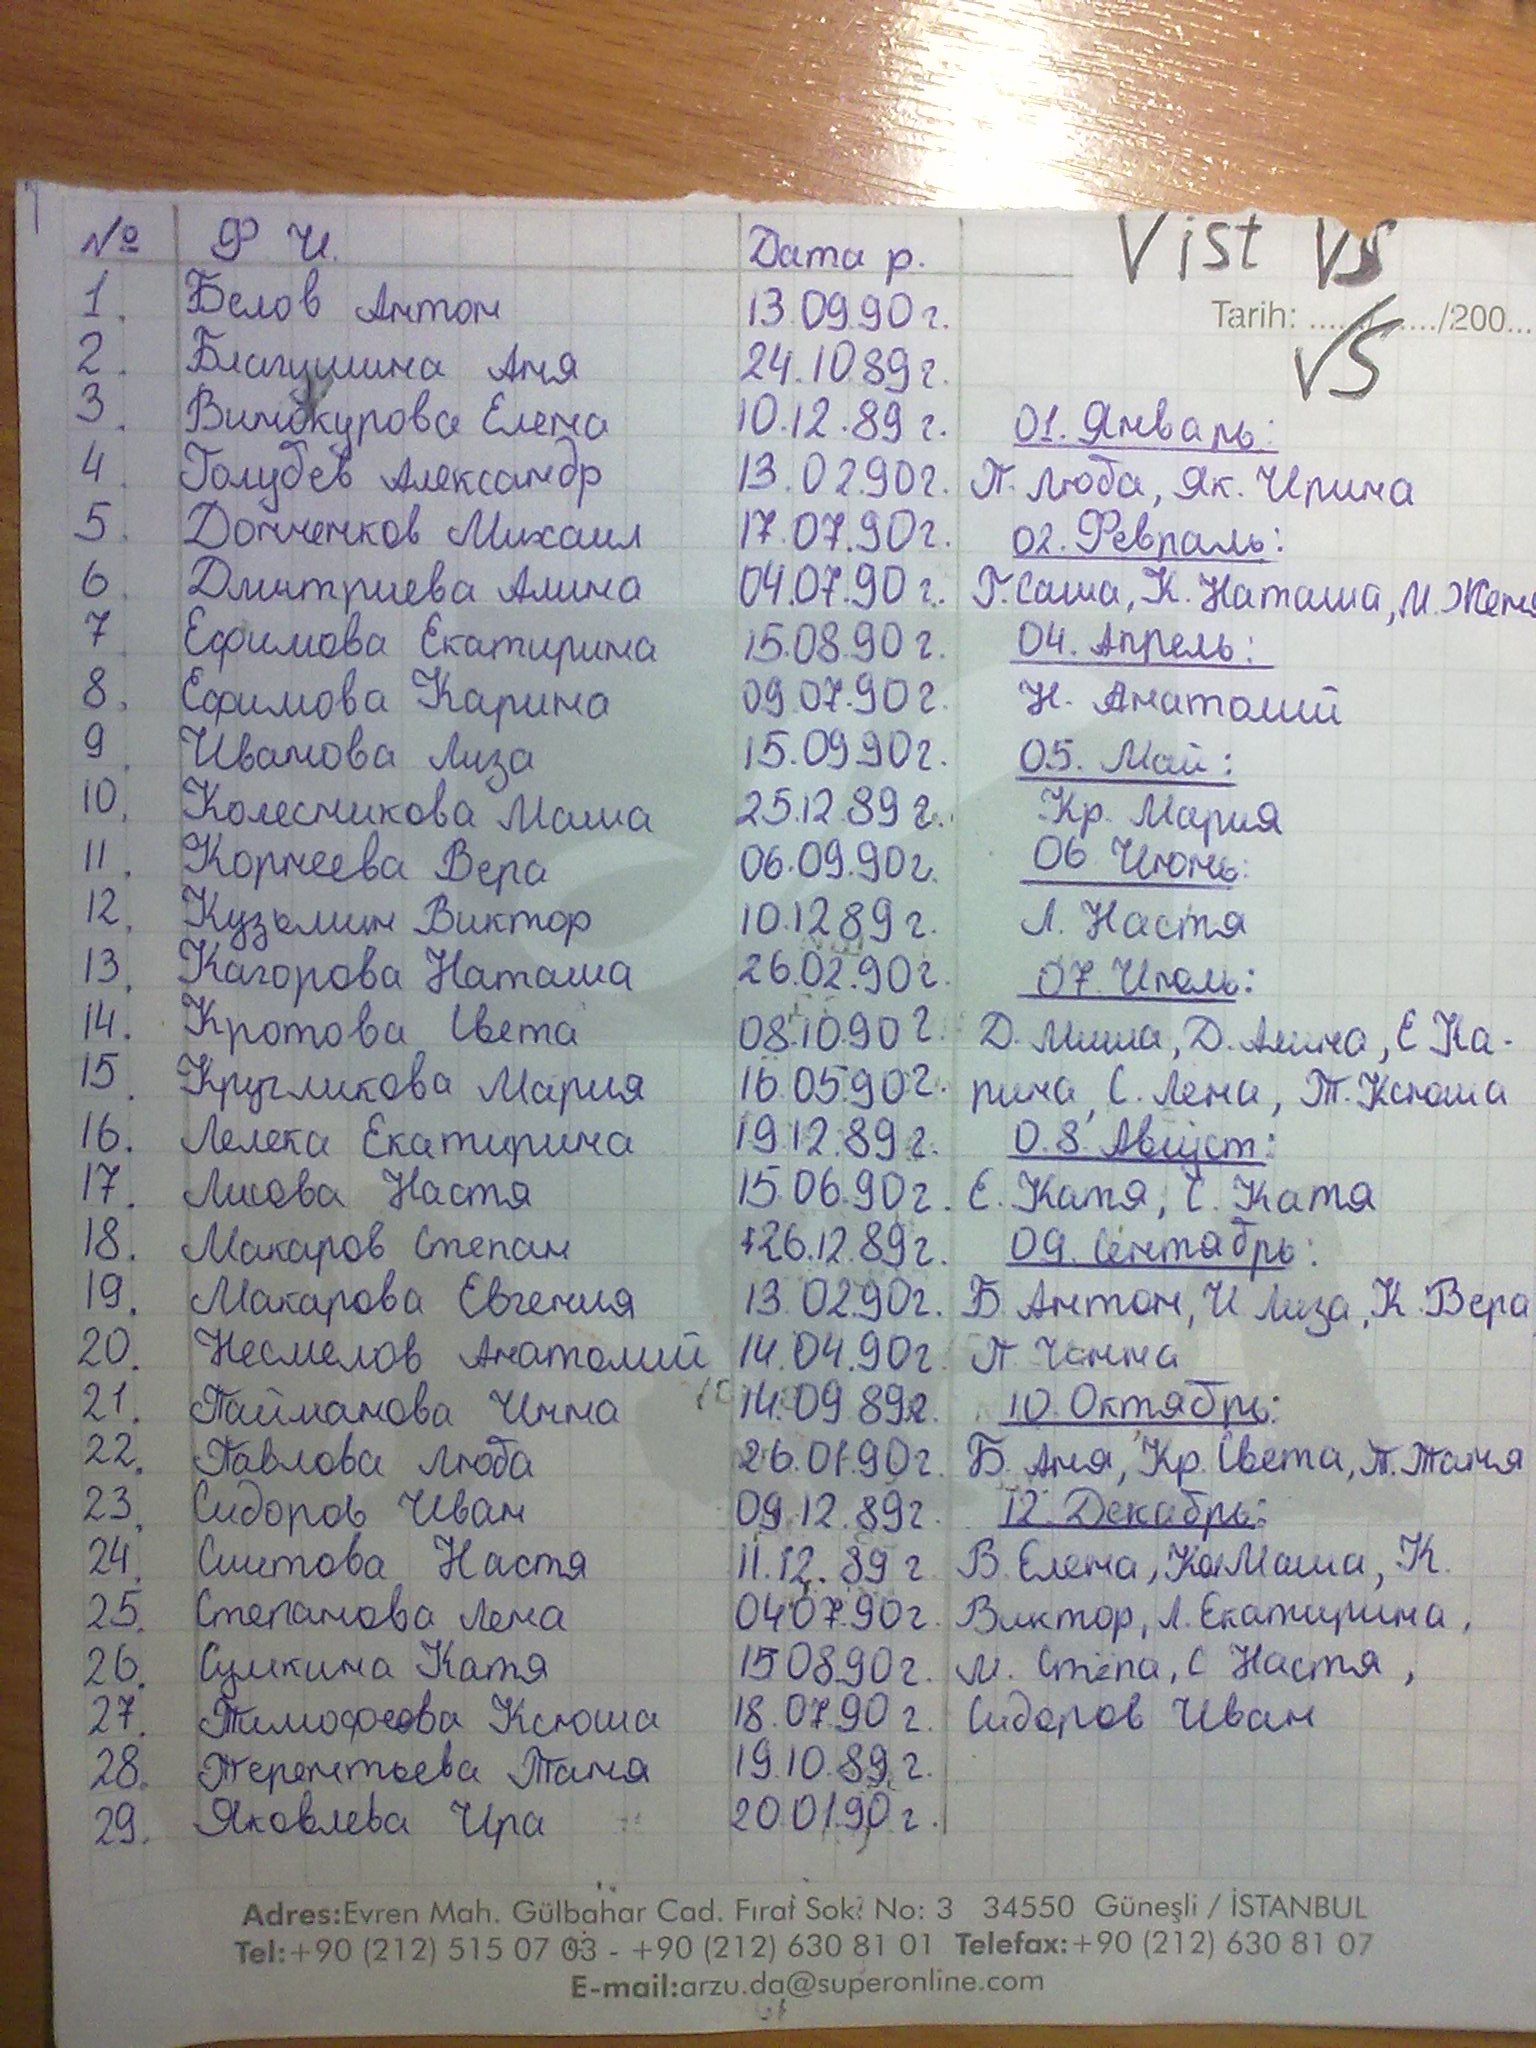 № Ф. И. Дата р. Vist VS
1. Белов Антон 13.09.90г.
Tarih: ....../....../200...
VS
2. Благушина Аня 24.10.89г.
3. Винокурова Елена 10.12.89г. 01. Январь:
4. Голубев Александр 13.02.90г. П. Люба, Як. Ирина
5. Донченков Михаил 17.07.90г. 02. Февраль:
6. Дмитриева Алина 04.07.90г. Г. Саша, К. Наташа, М. Женя
7. Ефимова Екатирина 15.08.90г. 04. Апрель:
8. Ефимова Карина 09.07.90г. Н. Анатолий
9. Иванова Лиза 15.09.90г. 05. Май:
10. Колесникова Маша 25.12.89г. Кр. Мария
11. Корнеева Вера 06.09.90г. 06 Июнь:
12. Кузьмин Виктор 10.12.89г. Л. Настя
13. Кагорова Наташа 26.02.90г. 07. Июль:
14. Кротова Света 08.10.90г. Д. Миша, Д. Алина, Е Ка-
15. Кругликова Мария 16.05.90г. рина, С. Лена, Т. Ксюша
16. Лелека Екатирина 19.12.89г. 0.8. Август:
17. Лисова Настя 15.06.90г. Е. Катя, С. Катя
18. Макаров Степан 26.12.89г. 09. Сентябрь:
19. Макарова Евгения 13.02.90г. Б. Антон, И Лиза, К. Вера
20. Несмелов Анатолий 14.04.90г. П Инна
21. Пайманова Инна 14.09.89г. 10. Октябрь:
22. Павлова Люба 26.01.90г. Б. Аня, Кр. Света, Т. Таня
23. Сидоров Иван 09.12.89г. 12. Декабрь:
24. Сиитова Настя 11.12.89г В. Елена, Ко Маша, К.
25. Степанова Лена 04.07.90г. Виктор, Л. Екатирина,
26. Сумкина Катя 15.08.90г. М. Стёпа, С Настя,
27. Тимофеева Ксюша 18.07.90г. Сидоров Иван
28. Терентьева Таня 19.10.89г.
29. Яковлева Ира 20.01.90г.
Adres:Evren Mah. Gülbahar Cad. Fırat Sok. No: 3 34550 Güneşli / İSTANBUL
Tel:+90 (212) 515 07 03 - +90 (212) 630 81 01 Telefax:+90 (212) 630 81 07
E-mail:arzu.da@superonline.com